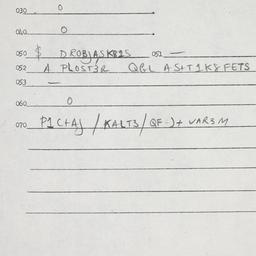 030 0
040 0
050 $ DROBJASKB2S 051 —
052 A PLOST3R QRL AS+T1K8 FETS
053 —
060 0
070 P1 C+AJ / KALT3 / QF -)+ VAR3M